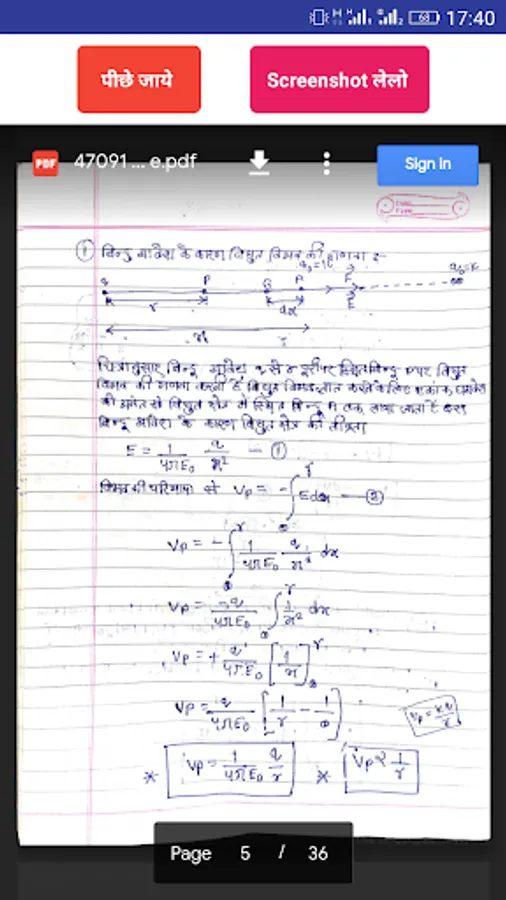 17:40
पीछे जाये
Screenshot लेलो
PDF 47091 ... e.pdf
Sign In
① बिन्दु आवेश के कारण विद्युत विभव की गणना :-
q P B A
r dx
x
चित्रानुसार बिन्दु आवेश q से r दूरी पर स्थित बिन्दु P पर विद्युत
विभव की गणना करनी है, विद्युत विभव ज्ञात करने के लिए एकांक धनावेश
को अनंत से विद्युत क्षेत्र में स्थित बिन्दु A तक लाया जाता है
बिन्दु आवेश के कारण विद्युत क्षेत्र की तीव्रता
E = 1/4πE₀ q/x² — ①
विभव की परिभाषा से Vp = -∫ Edx — ②
Vp = -∫ 1/4πE₀ · q/x² dx
Vp = -q/4πE₀ ∫ 1/x² dx
Vp = + q/4πE₀ [1/x]
Vp = q/4πE₀ [1/r - 1/∞]
Vp = Kq/r
* Vp = 1/4πE₀ q/r * Vp ∝ 1/r
Page 5 / 36